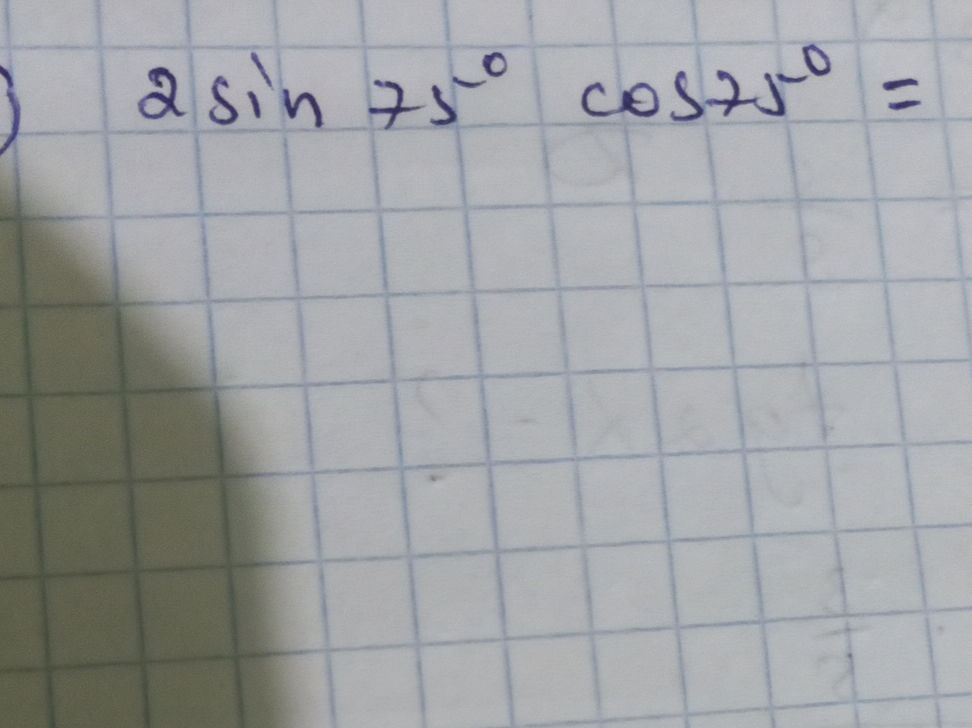 ) 2 sin 75° cos 75° =